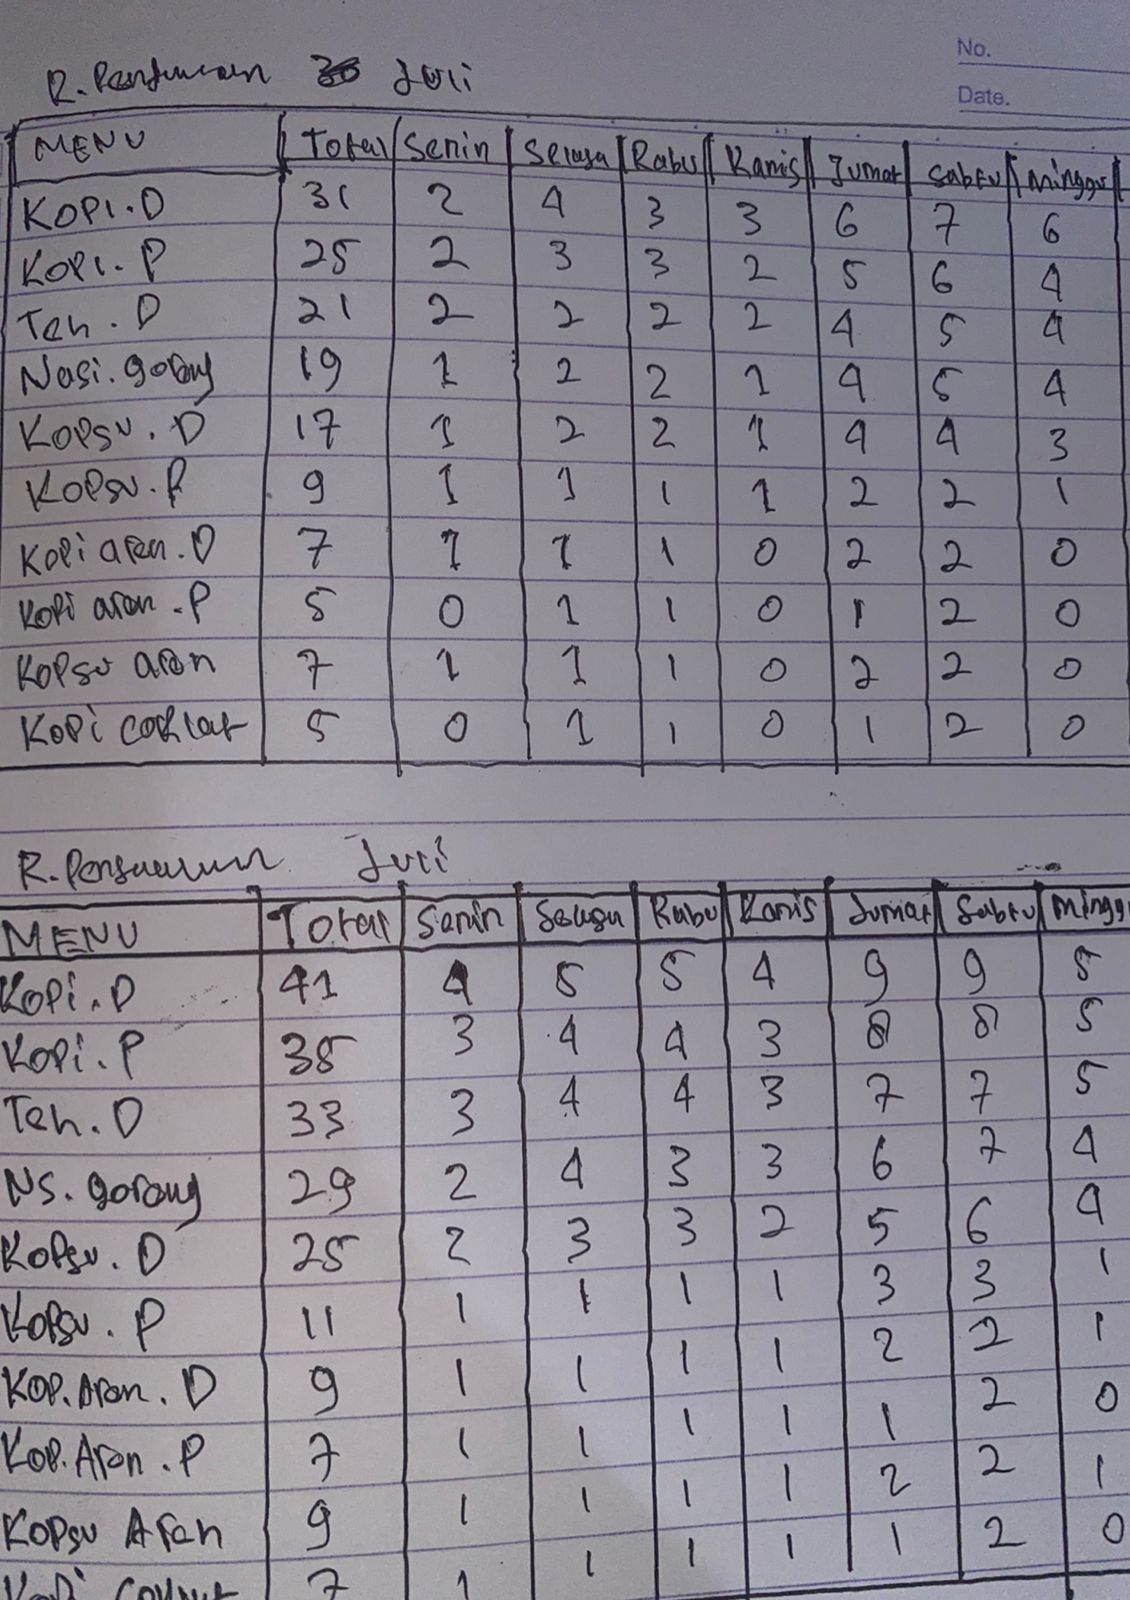 No.
Date.
R. Penjualan Juli
MENU Total Senin Selasa Rabu Kamis Jumat Sabtu Minggu
KOPI.D 31 2 4 3 3 6 7 6
KOPI.P 25 2 3 3 2 5 6 4
Teh.D 21 2 2 2 2 4 5 4
Nasi.goreng 19 1 2 2 1 4 5 4
KOPSU.D 17 1 2 2 1 4 4 3
KOPSU.P 9 1 1 1 1 2 2 1
Kopi aren.D 7 1 1 1 0 2 2 0
Kopi aren.P 5 0 1 1 0 1 2 0
Kopsu aren 7 1 1 1 0 2 2 0
Kopi coklat 5 0 1 1 0 1 2 0
R. Penjualan Juli
MENU Total Senin Selasa Rabu Kamis Jumat Sabtu Minggu
Kopi.D 41 4 5 5 4 9 9 5
Kopi.P 35 3 4 4 3 8 8 5
Teh.D 33 3 4 4 3 7 7 5
NS.goreng 29 2 4 3 3 6 7 4
Kopsu.D 25 2 3 3 2 5 6 4
Kopsu.P 11 1 1 1 1 3 3 1
Kop.Aren.D 9 1 1 1 1 2 2 1
Kop.Aren.P 7 1 1 1 1 1 2 0
Kopsu Aren 9 1 1 1 1 2 2 1
Kopi 7 1 1 1 1 1 2 0